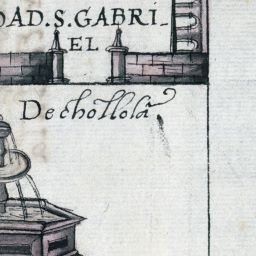 DAD. S. GABRI-
EL
De chollola